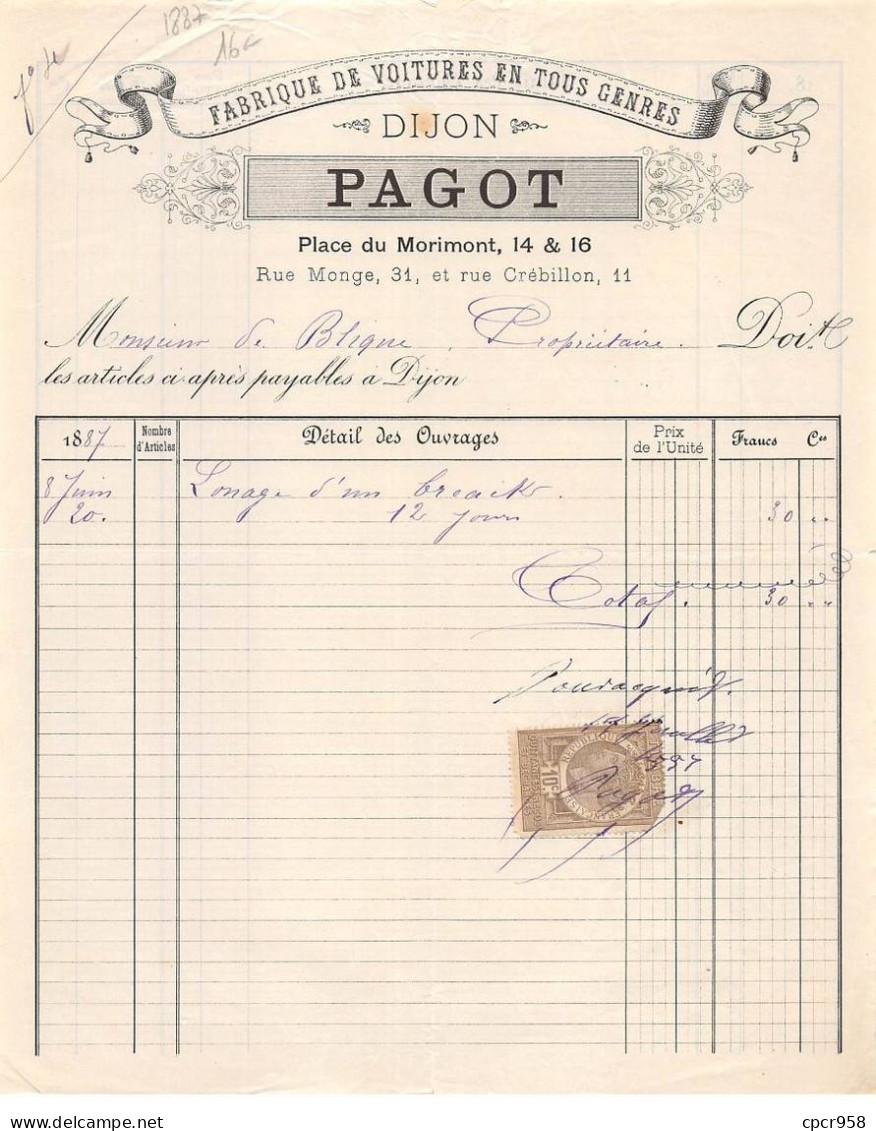 1887
16c
FABRIQUE DE VOITURES EN TOUS GENRES
DIJON
PAGOT
Place du Morimont, 14 & 16
Rue Monge, 31, et rue Crébillon, 11
Monsieur de Bligne, Propriétaire. Doit
les articles ci après payables à Dijon
1887 Nombre d'Articles Détail des Ouvrages Prix de l'Unité Francs Ces
8 Juin Louage d'un breack.
20. 12 jours 30 "
Total. 30 "
Pour acquit.
Juillet
1887
Pagot
RÉPUBLIQUE FRANÇAISE
10c
cpcr958